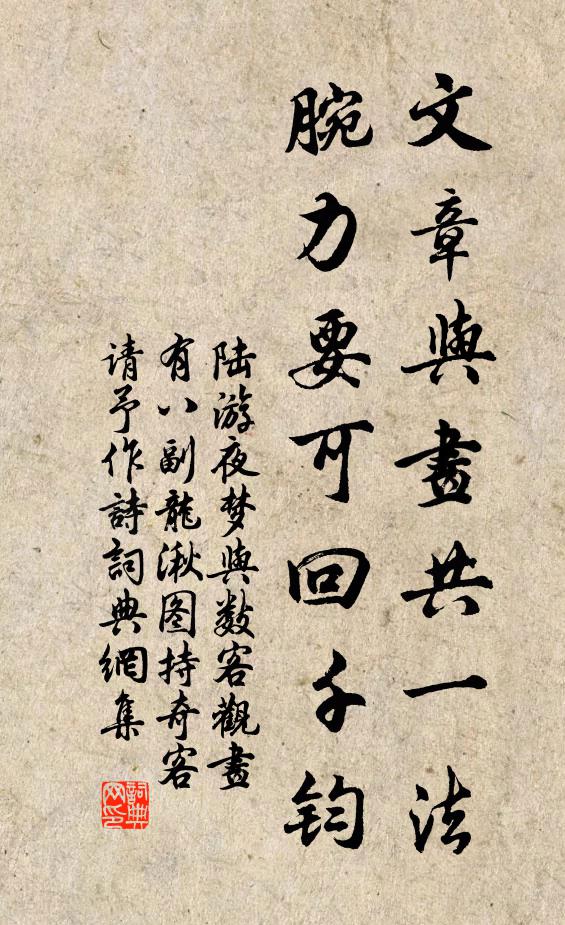 文章與畫共一法
腕力要可回千钧
陆游夜梦與数客觀畫
有八副龍湫图持奇客
请予作詩詞典網集
詞典网印